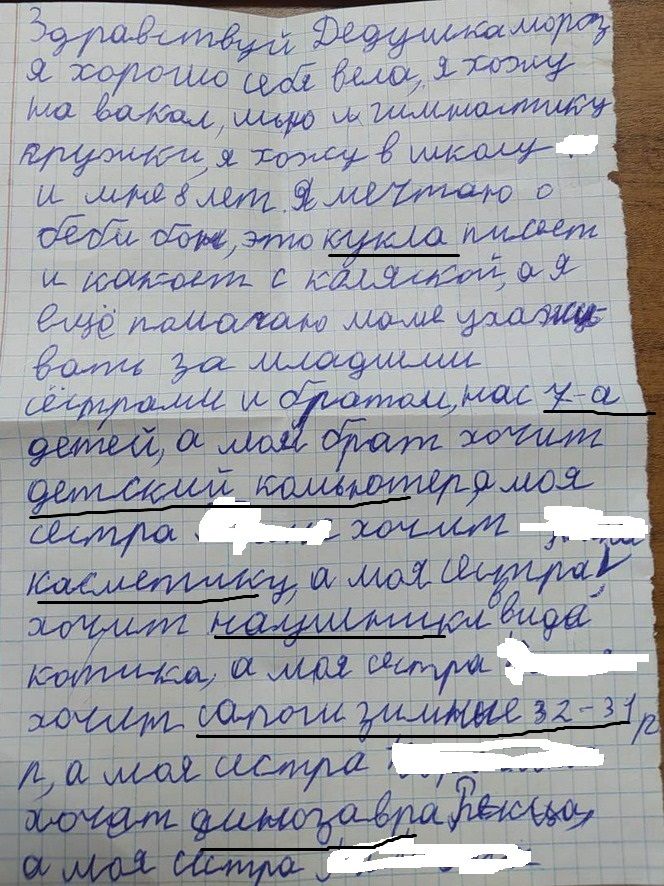 Здравствуй Дедушка мороз
я хорошо себя вела, я хожу
на вакал, и гимнастику
кружки, я хожу в школу
и мне 8 лет. Я мечтаю о
беби бон, это кукла писает
и какает с каляской, а я
ещё помагаю маме ухажи-
вать за младшими
сёстрами и братом, нас 7-а
детей, а мой брат хочит
детский компютер, а моя
сестра хочит
касметику, а моя сестра
хочит наушники вида
котика, а моя сестра
хочит сапоги зимные 32-31 р
р, а моя сестра
хочат динозавра Рекца,
а моя сестра